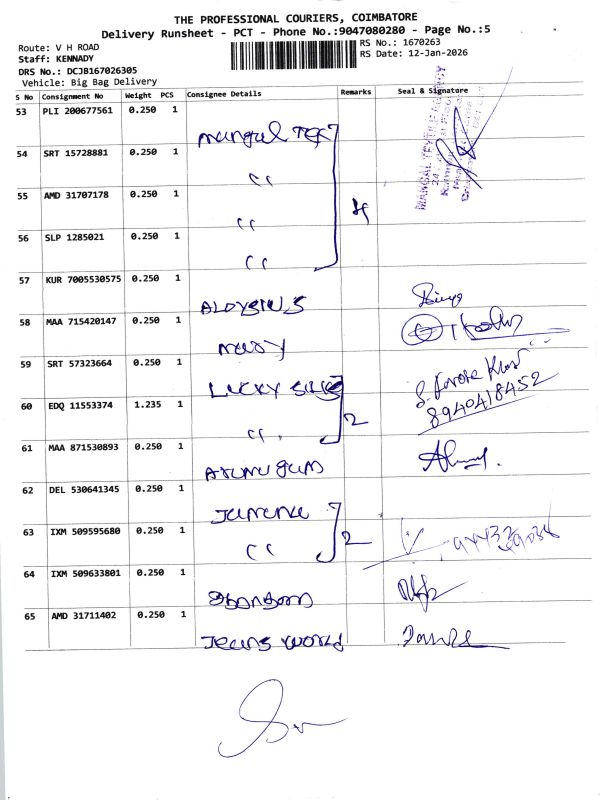 THE PROFESSIONAL COURIERS, COIMBATORE
Delivery Runsheet - PCT - Phone No.:9047080280 - Page No.:5
Route: V H ROAD
Staff: KENNADY
DRS No.: DCJB167026305
Vehicle: Big Bag Delivery
RS No.: 1670263
RS Date: 12-Jan-2026
S No Consignment No Weight PCS Consignee Details Remarks Seal & Signature
53 PLI 200677561 0.250 1 Mangal Tex
54 SRT 15728881 0.250 1 "
55 AMD 31707178 0.250 1 " 4
56 SLP 1285021 0.250 1 "
57 KUR 7005530575 0.250 1 ALOYSIUS
58 MAA 715420147 0.250 1 Mary
59 SRT 57323664 0.250 1 LUCKY SILKS
8940418452
60 EDQ 11553374 1.235 1 " 2
61 MAA 871530893 0.250 1 Arumugum
62 DEL 530641345 0.250 1
63 IXM 509595680 0.250 1 " 2
64 IXM 509633801 0.250 1
65 AMD 31711402 0.250 1 Jeans World
MANGAL TEXTILE AGENCY